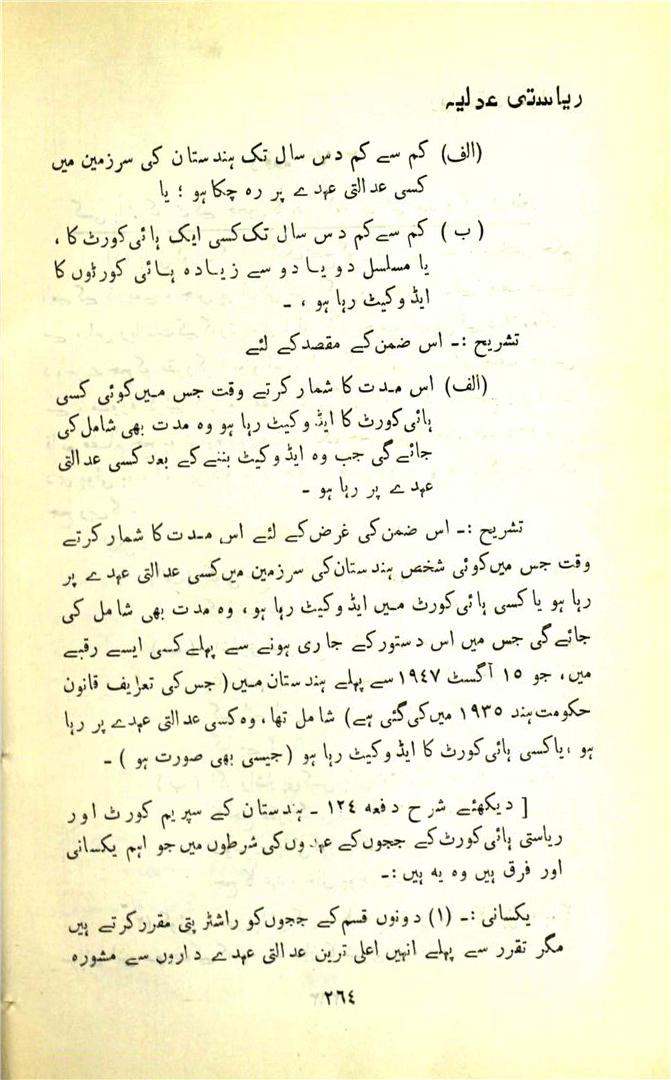 ریاستی عدلیہ
(الف) کم سے کم دس سال تک ہندستان کی سرزمین میں
کسی عدالتی عہدے پر رہ چکا ہو ؛ یا
( ب ) کم سے کم دس سال تک کسی ایک ہائی کورٹ کا ،
یا مسلسل دو یا دو سے زیادہ ہائی کورٹوں کا
ایڈوکیٹ رہا ہو ، ۔
تشریح :۔ اس ضمن کے مقصد کے لئے
(الف) اس مدت کا شمار کرتے وقت جس میں کوئی کسی
ہائی کورٹ کا ایڈوکیٹ رہا ہو وہ مدت بھی شامل کی
جائے گی جب وہ ایڈوکیٹ بننے کے بعد کسی عدالتی
عہدے پر رہا ہو ۔
تشریح :۔ اس ضمن کی غرض کے لئے اس مدت کا شمار کرتے
وقت جس میں کوئی شخص ہندستان کی سرزمین میں کسی عدالتی عہدے پر
رہا ہو یا کسی ہائی کورٹ میں ایڈوکیٹ رہا ہو ، وہ مدت بھی شامل کی
جائے گی جس میں اس دستور کے جاری ہونے سے پہلے کسی ایسے رقبے
میں ، جو ١٥ آگسٹ ١٩٤٧ سے پہلے ہندستان میں ( جس کی تعریف قانون
حکومت ہند ١٩٣٥ میں کی گئی ہے ) شامل تھا ، وہ کسی عدالتی عہدے پر رہا
ہو ، یا کسی ہائی کورٹ کا ایڈوکیٹ رہا ہو ( جیسی بھی صورت ہو ) ۔
[ دیکھئے شرح دفعہ ١٢٤ ۔ ہندستان کے سپریم کورٹ اور
ریاستی ہائی کورٹ کے ججوں کے عہدوں کی شرطوں میں جو اہم یکسانی
اور فرق ہیں وہ یہ ہیں :۔
یکسانی :۔ (١) دونوں قسم کے ججوں کو راشٹر پتی مقرر کرتے ہیں
مگر تقرر سے پہلے انہیں اعلی ترین عدالتی عہدے داروں سے مشورہ
٢٦٤